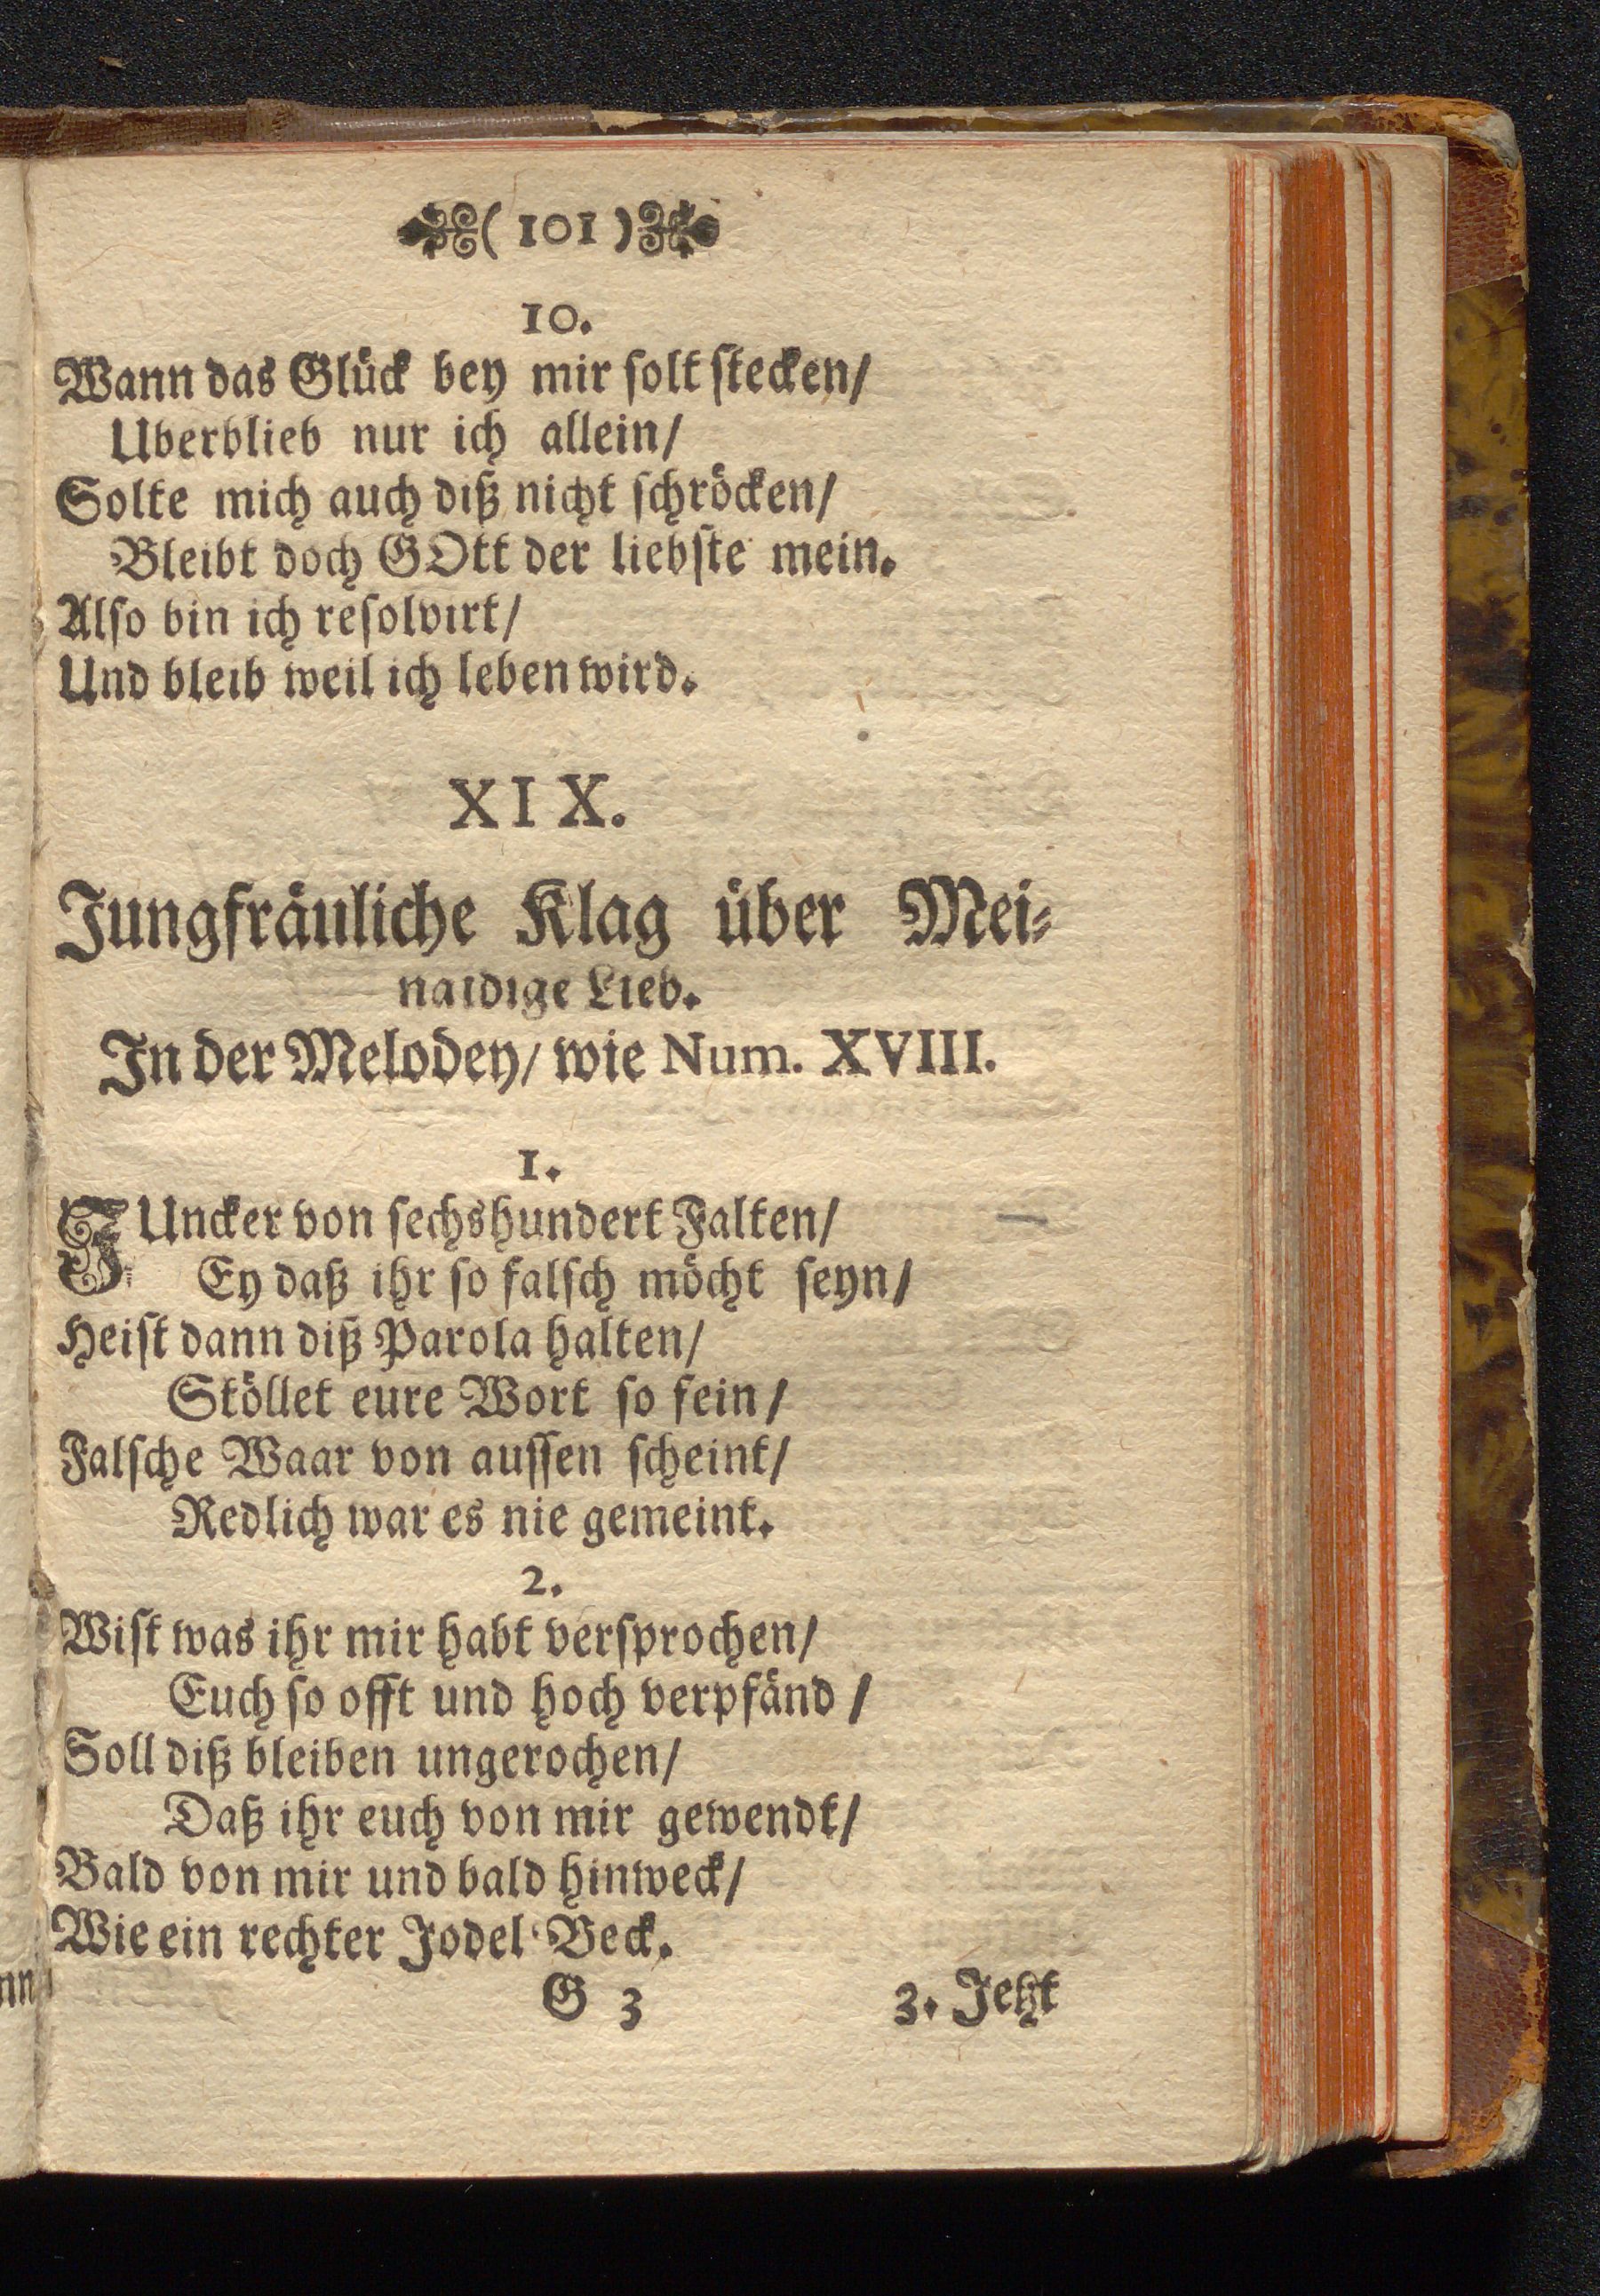 ( 101 )
10.
Wann das Glück bey mir solt stecken/
Uberblieb nur ich allein/
Solte mich auch diß nicht schröcken/
Bleibt doch GOtt der liebste mein.
Also bin ich resolvirt/
Und bleib weil ich leben wird.
XIX.
Jungfräuliche Klag über Mei-
naidige Lieb.
In der Melodey/ wie Num. XVIII.
1.
JUncker von sechshundert Falten/
Ey daß ihr so falsch möcht seyn/
Heist dann diß Parola halten/
Stöllet eure Wort so fein/
Falsche Waar von aussen scheint/
Redlich war es nie gemeint.
2.
Wist was ihr mir habt versprochen/
Euch so offt und hoch verpfänd /
Soll diß bleiben ungerochen/
Daß ihr euch von mir gewendt/
Bald von mir und bald hinweck/
Wie ein rechter Jodel-Beck.
G 3
3. Jetzt